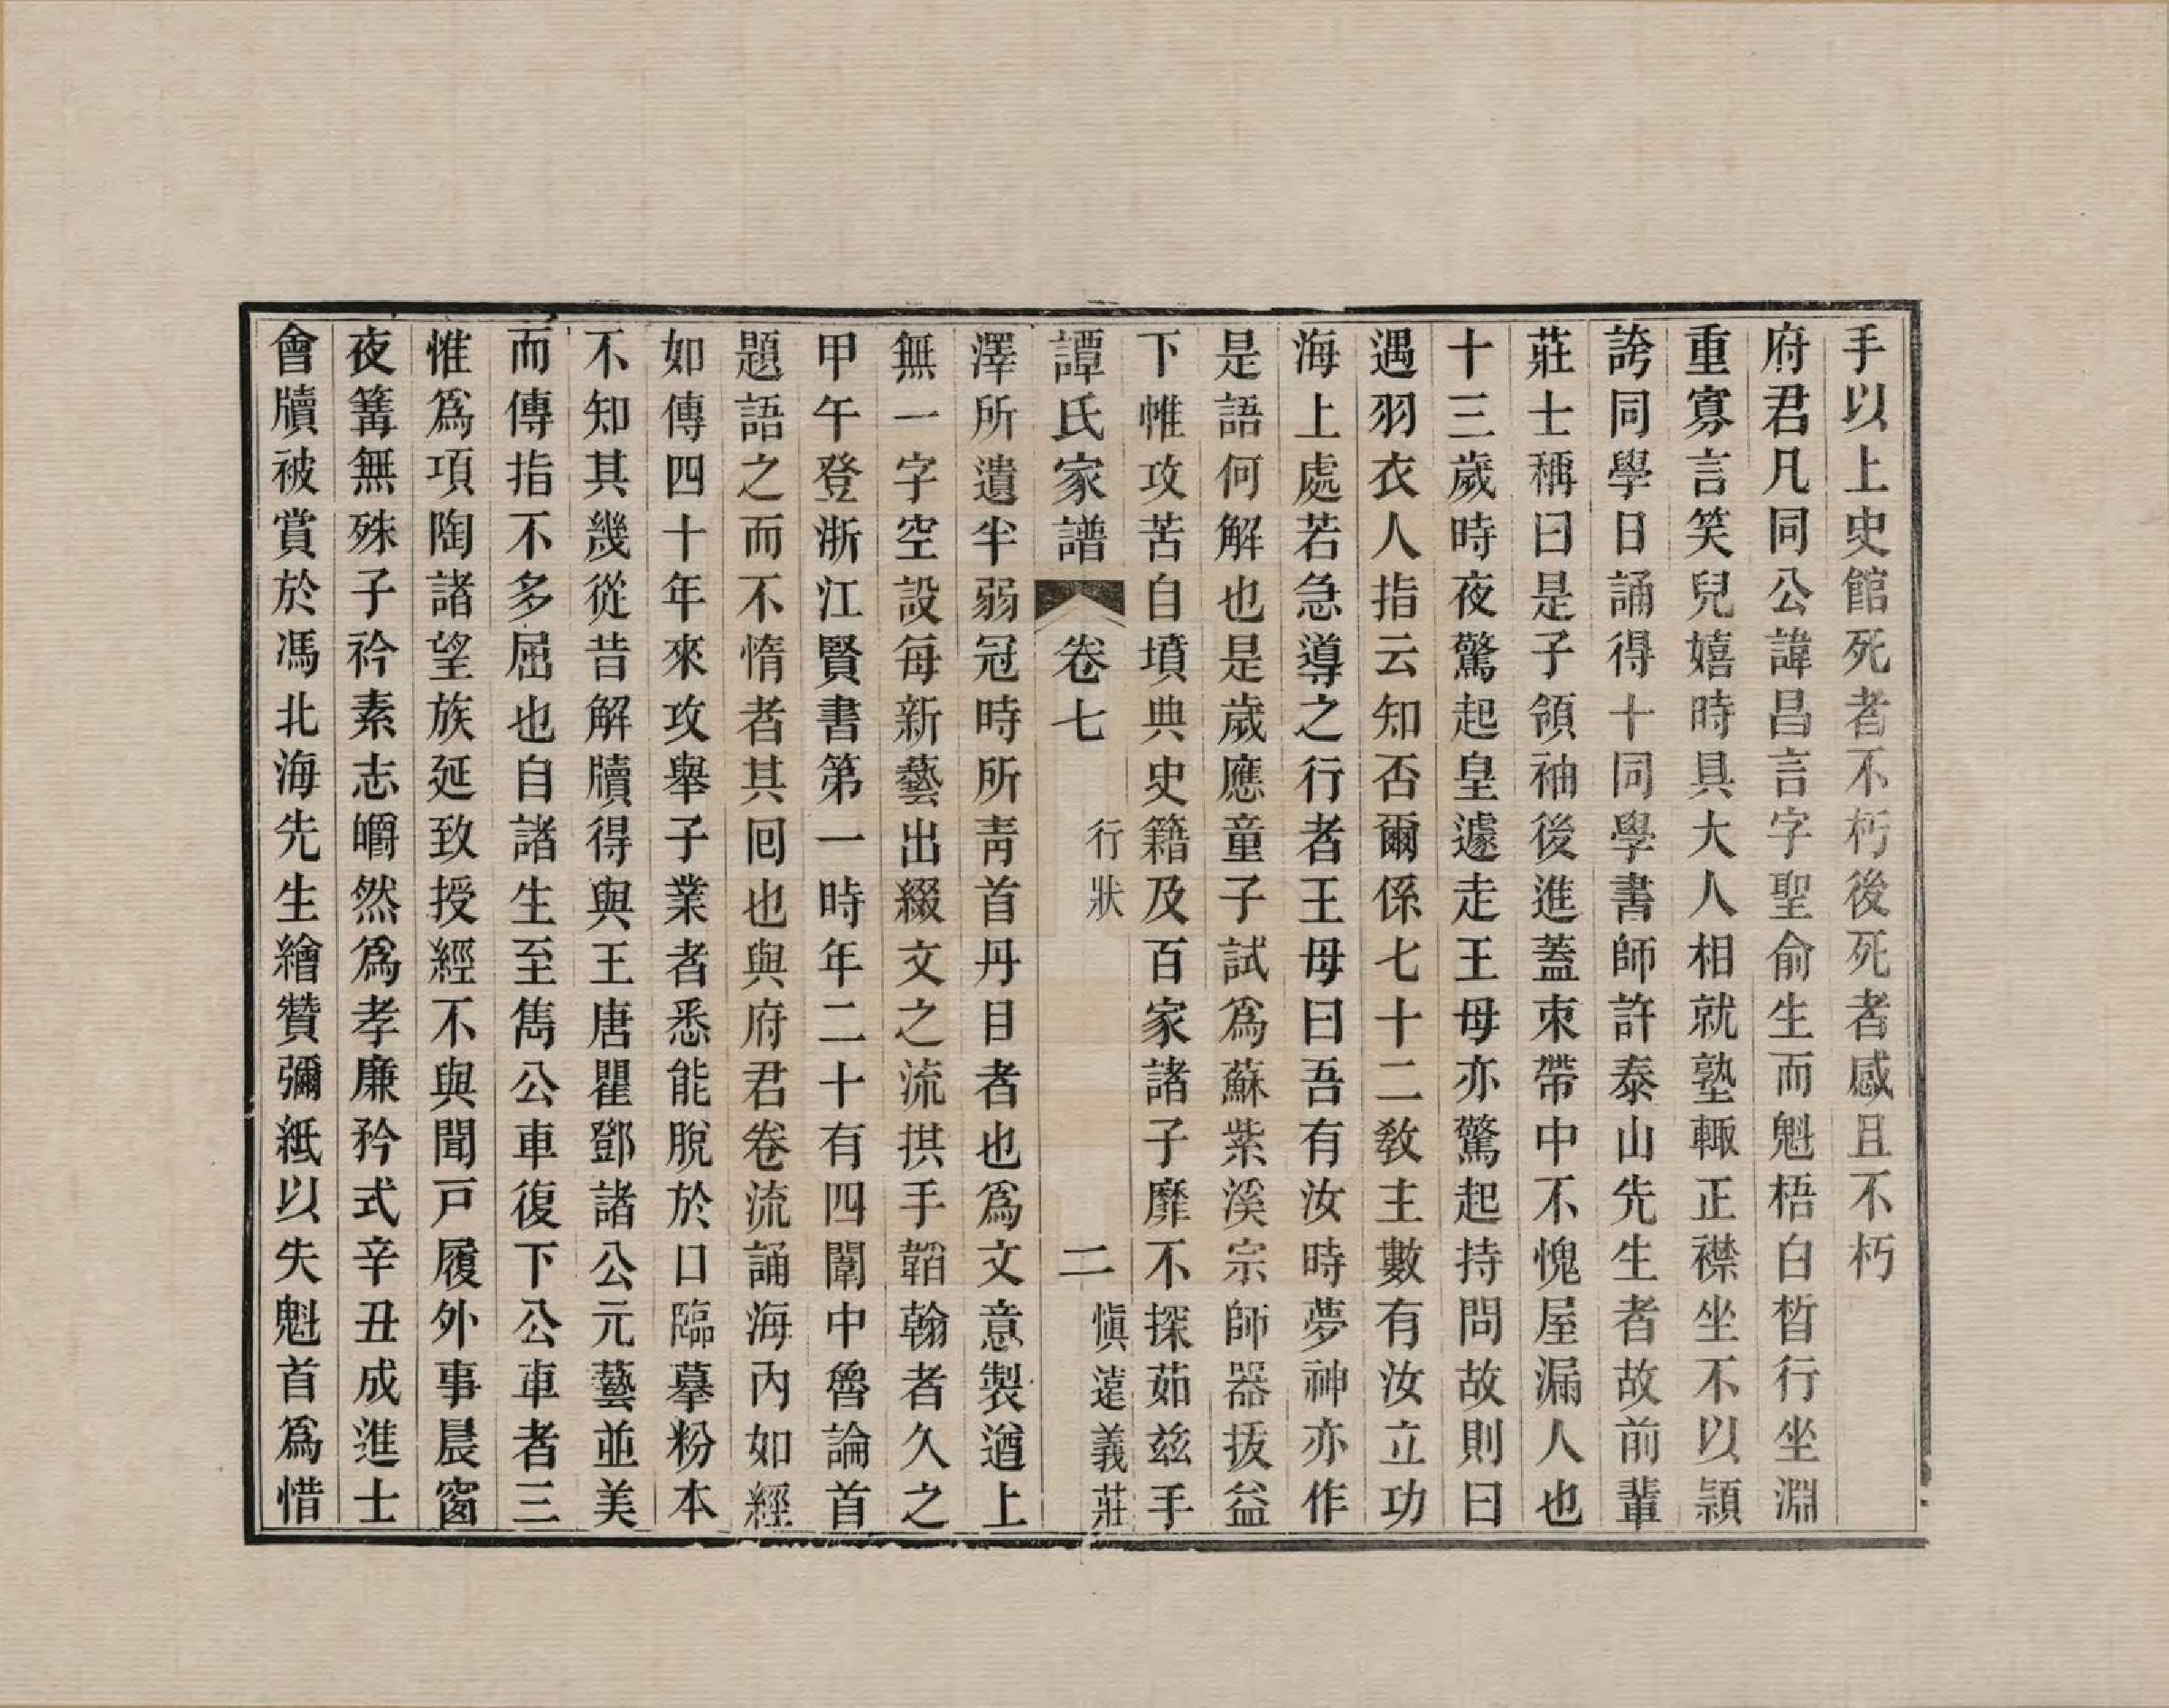 手以上史館死者不朽後死者感且不朽
府君凡同公諱昌言字聖俞生而魁梧白皙行坐淵
重寡言笑兒嬉時具大人相就塾輒正襟坐不以穎
誇同學日誦得十同學書師許泰山先生者故前輩
莊士稱曰是子領袖後進蓋束帶中不愧屋漏人也
十三歲時夜驚起皇遽走王母亦驚起持問故則曰
遇羽衣人指云知否爾係七十二教主數有汝立功
海上處若急導之行者王母曰吾有汝時夢神亦作
是語何解也是歲應童子試爲蘇紫溪宗師器拔益
下帷攻苦自墳典史籍及百家諸子靡不探茹茲手
譚氏家譜 卷七 行狀 二 愼遠義莊
澤所遺半弱冠時所靑首丹目者也爲文意製遒上
無一字空設每新藝出綴文之流拱手韜翰者久之
甲午登浙江賢書第一時年二十有四闈中魯論首
題語之而不惰者其囘也與府君卷流誦海內如經
如傳四十年來攻舉子業者悉能脫於口臨摹粉本
不知其幾從昔解牘得與王唐瞿鄧諸公元藝並美
而傳指不多屈也自諸生至雋公車復下公車者三
惟爲項陶諸望族延致授經不與聞戸履外事晨窗
夜篝無殊子衿素志皭然爲孝廉矜式辛丑成進士
會牘被賞於馮北海先生繪贊彌紙以失魁首爲惜